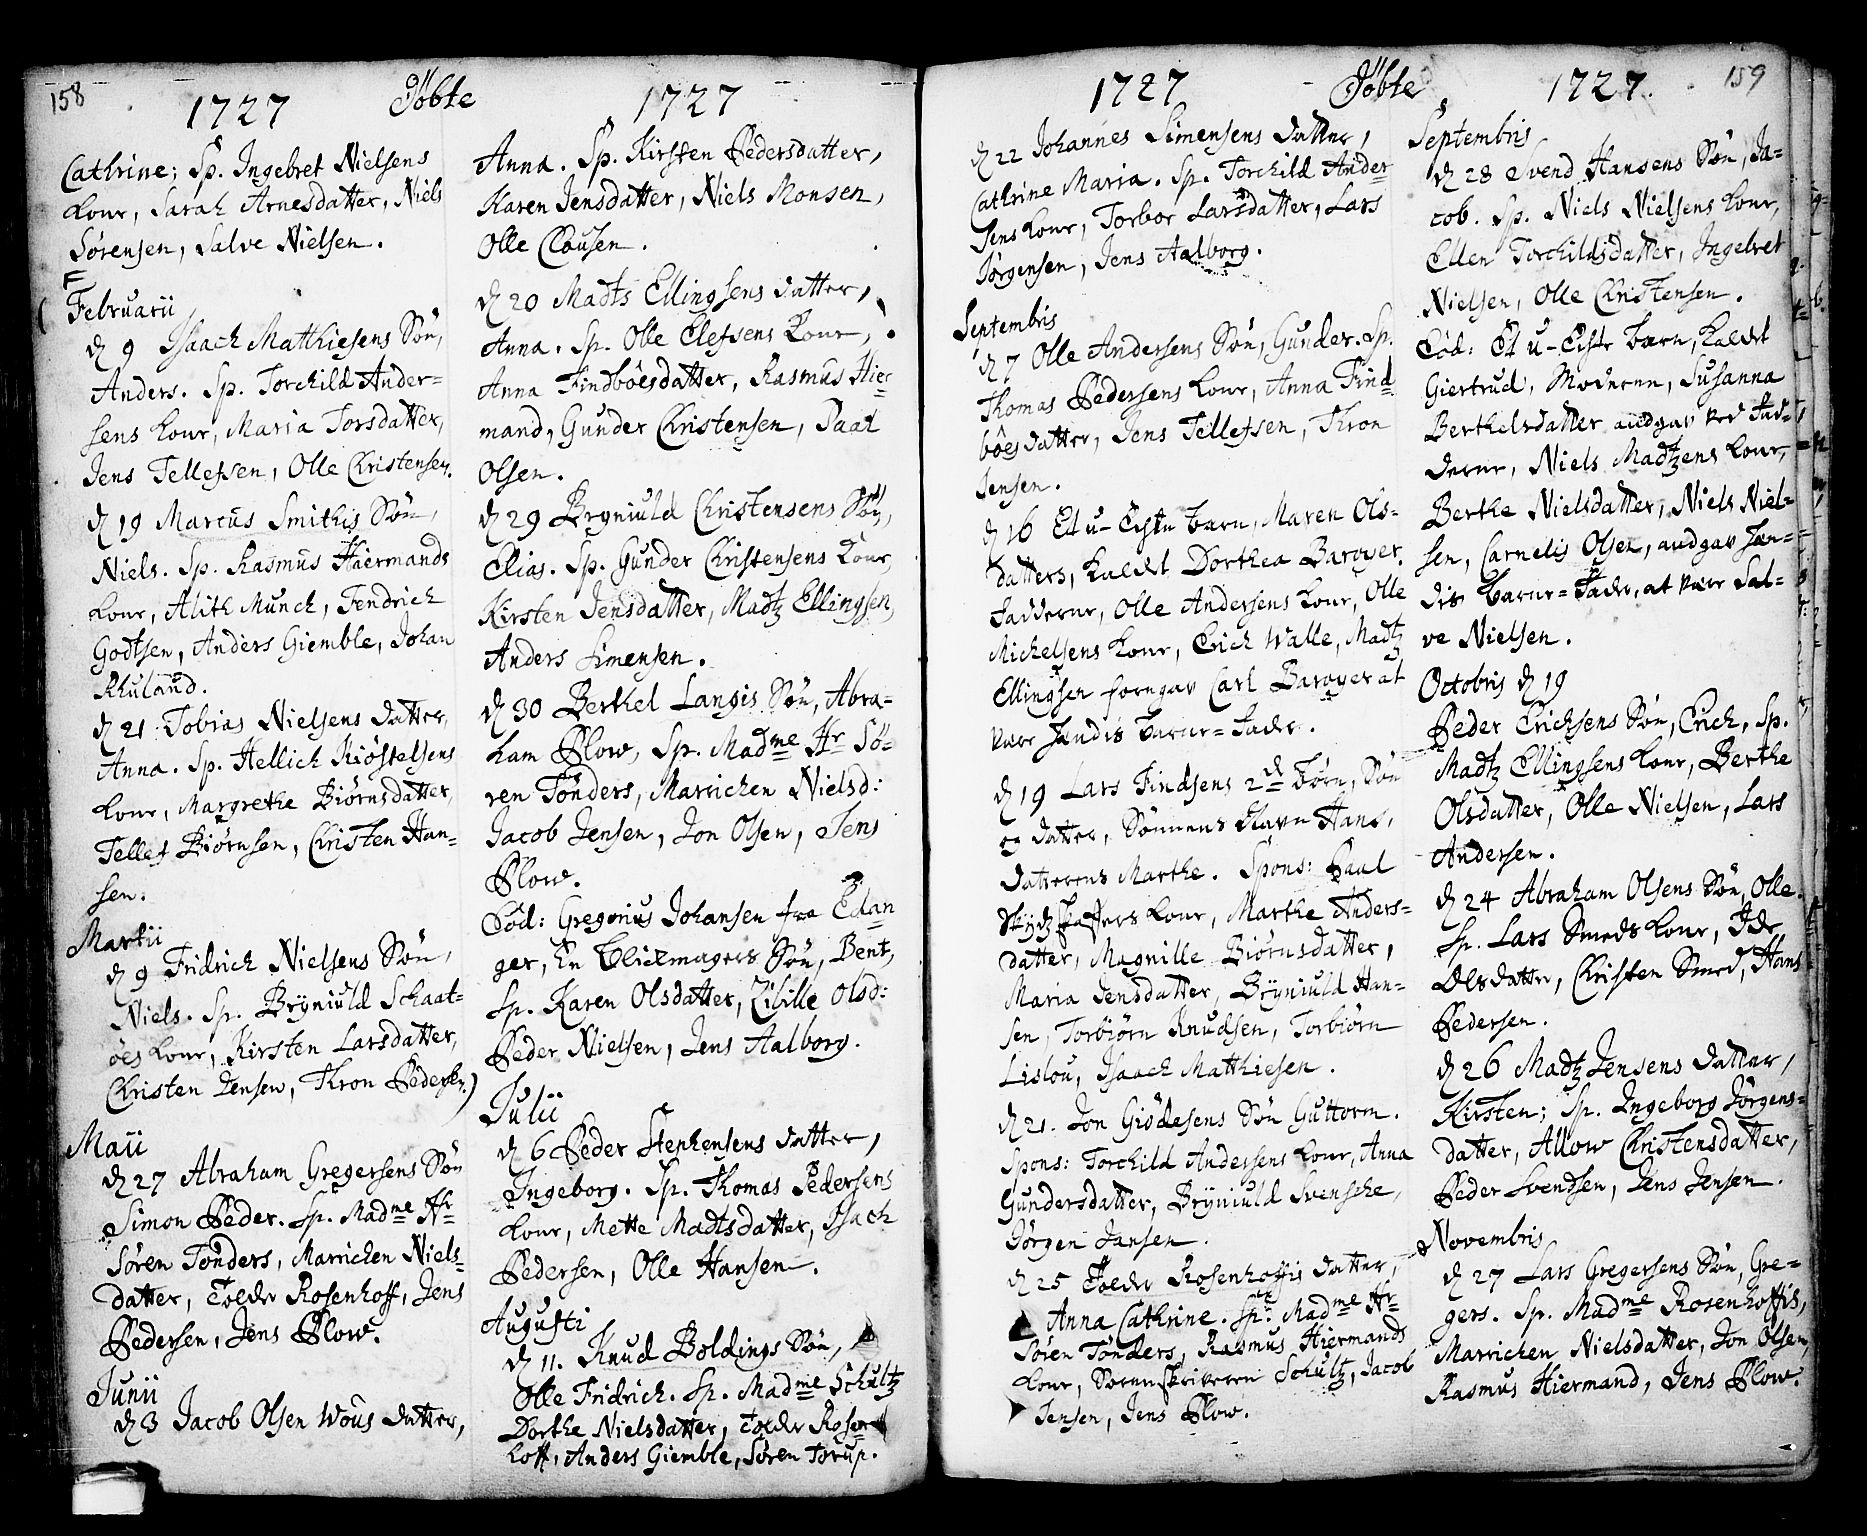 158
1727 Döbte 1727
Cathrine; Sp. Ingebret Nielsens
Kone, Sarah Arnesdatter, Niels
Sörensen, Salve Nielsen.
F
Februarii
d 9 Isaach Matthiesens Sön,
Anders. Sp. Torchild Ander=
sens Kone, Maria Torsdatter,
Jens Tellefsen, Olle Christensen.
d 19 Marcus Smithis Sön,
Niels. Sp. Rasmus Haermands
Kone, Alith Munch, Fendrich
Godtsen, Anders Giemble, Johan
Rhuland.
d 21 Tobias Nielsens datter,
Anna. Sp. Hellich Kiöstelsens
Kone, Margrethe Biörnsdatter,
Tellef Biörnsen, Christen Han=
sen.
Martii
d 9 Fridrich Nielsens Sön,
Niels. Sp. Bryniuld Schaat=
öes Kone, Kirsten Larsdatter,
Christen Jensen, Thron Pedersen.)
Maii
d 27 Abraham Gregersens Sön
Simon Peder. Sp. Madme Hr
Sören Tönders, Marrichen Niels=
datter, Tolder Rosenhoff, Jens
Pedersen, Jens Plow.
Junii
d 3 Jacob Olsen Wous datter,
Anna. Sp. Kirsten Pedersdatter,
Karen Jensdatter, Niels Monsen,
Olle Clausen.
d 20 Madts Ellingsens datter,
Anna. Sp. Olle Elefsens Kone,
Anna Findböesdatter, Rasmus Hier=
mand, Gunder Christensen, Paal
Olsen.
d 29 Bryniuld Christensens Sön,
Elias. Sp. Gunder Christensens Kone,
Kirsten Jensdatter, Madtz Ellingsen,
Anders Simensen.
d 30 Berthel Langis Sön, Abra=
ham Plow, Sp. Madme Hr Sö=
ren Tönders, Marrichen Nielsd:
Jacob Jensen, Jon Olsen, Jens
Plow.
Eod: Gregorius Johansen fra Edan
ger, En Blickmagers Sön, Bent,
Sp. Karen Olsdatter, Zibille Olsd:
Peder Nielsen, Jens Aalborg.
Julii
d 6 Peder Stephensens datter,
Ingeborg. Sp. Thomas Pedersens
Kone, Mette Madtsdatter, Isach
Pedersen, Olle Hansen.
Augusti
d 11. Knud Boldings Sön,
Olle Fridrich. Sp. Madme Schultz
Dorthe Nielsdatter, Tolder Rosen
hoff, Anders Giemble, Sören Torup.
1727 Döbte 1727. 159
d 22 Johannes Simensens datter,
Cathrine Maria. Sp. Torchild Ander
sens Kone, Torbor Larsdatter, Lars
Jörgensen, Jens Aalborg.
Septembris
d 7 Olle Andersens Sön, Gunder. Sp.
Thomas Pedersens Kone, Anna Find
böesdatter, Jens Tellefsen, Thron
Jensen.
d 16 Et u-Echte barn, Maren Ols=
datters, kaldet Dorthea Baroyer.
Fadderne, Olle Andersens Kone, Olle
Michelsens Kone, Erich Walle, Madtz
Ellingsen forngav Carl Baroyer at
være Hendis barne=Fader.
d 19 Lars Findsens 2de börn, Sön
og datter, Sönnens Navn Hans,
datterens Marthe. Spons: Paul
Skydzskaffers Kone, Marthe Anders=
datter, Magnille Biörnsdatter,
Maria Jensdatter, Bryniuld Han=
sen, Torbiörn Knudsen, Torbiörn
Lislou, Isaach Matthiesen.
d 21. Jon Giödesens Sön Guttorm.
Spons: Torchild Andersens Kone, Anna
Gundersdatter, Bryniuld Svensche,
Jörgen Jansen.
d 25 Tolder Rosenhoffis datter,
Anna Cathrine. Sp: Madme Hr
Sören Tönders, Rasmus Hiermands
Kone, Sorenskriveren Schultz, Jacob
Jensen, Jens Plow.
Septembris
d 28 Svend Hansens Sön, Ja=
cob. Sp. Niels Nielsens Kone,
Ellen Torchildsdatter, Ingebret
Nielsen, Olle Christensen.
Eod: Et u-Echte barn, kaldet
Giertrud, Moderen, Susanna
Berthelsdatter audgav ved Fad=
derne, Niels Madtzens Kone,
Berthe Nielsdatter, Niels Niel=
sen, Carnelis Olsen, audgav Hen=
dis barne=Fader, at være Sal=
ve Nielsen.
Octobris d 19
Peder Erichsens Sön, Erich, Sp.
Madtz Ellingsens Kone, Berthe
Olsdatter, Olle Nielsen, Lars
Andersen.
d 24 Abraham Olsens Sön, Olle.
Sp. Lars Smeds Kone, Ide
Olsdatter, Christen Smed, Hans
Pedersen.
d 26 Madtz Jensens datter,
Kirsten; Sp. Ingeborg Jörgens=
datter, Allow Christensdatter,
Peder Svendsen, Jens Jensen.
Novembris
d 27 Lars Gregersens Sön, Gre=
gers. Sp. Madme Rosenhoffis,
Marrichen Nielsdatter, Jon Olsen,
Rasmus Hiermand, Jens Plow.